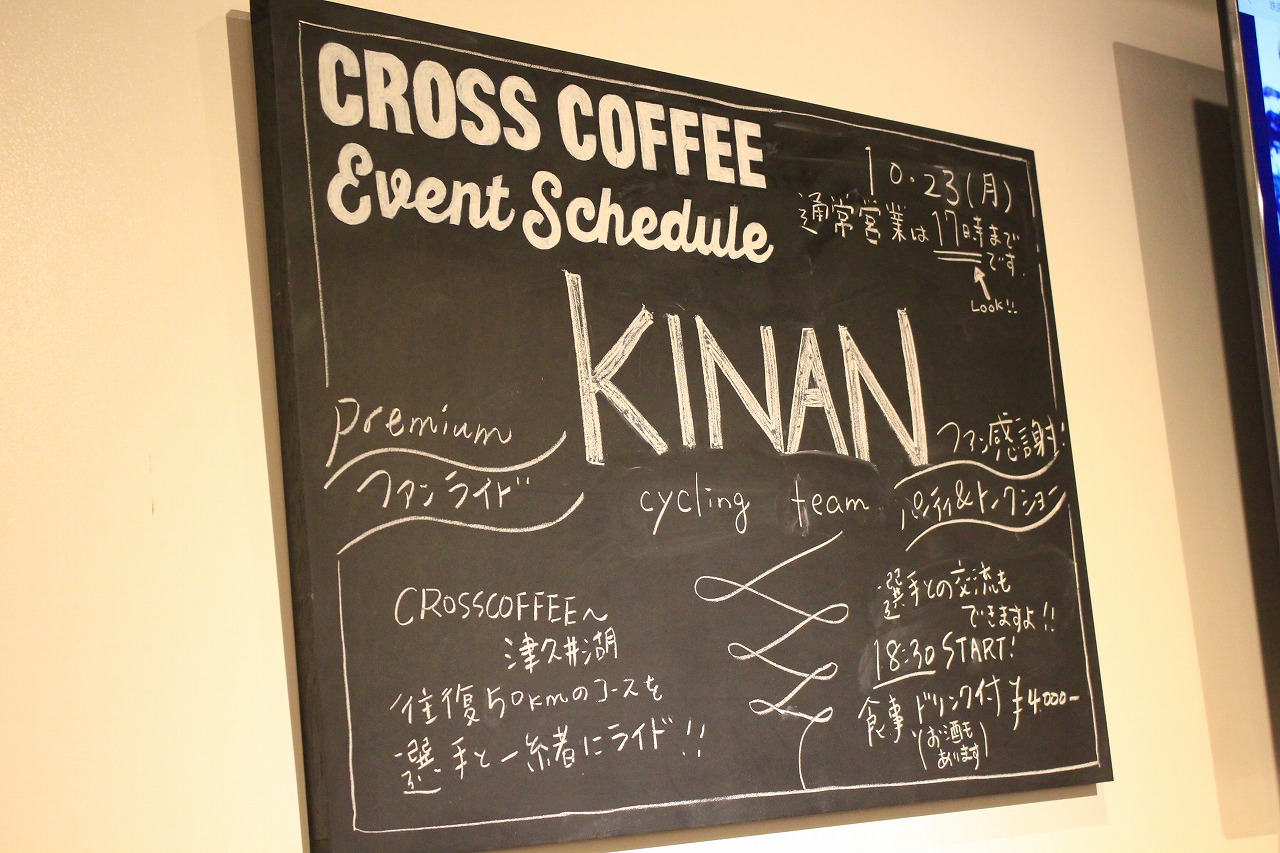 CROSS COFFEE
Event Schedule
10.23(月)
通常営業は17時まで
です.
Look!!
KINAN
cycling team
premium
ファンライド
CROSSCOFFEE〜
津久井湖
往復50kmのコースを
選手と一緒にライド!!
ファン感謝!
パーティ&トークション
選手との交流も
できますよ!!
18:30 START!
食事、ドリンク付 ¥4.000-
(お酒も
あります)